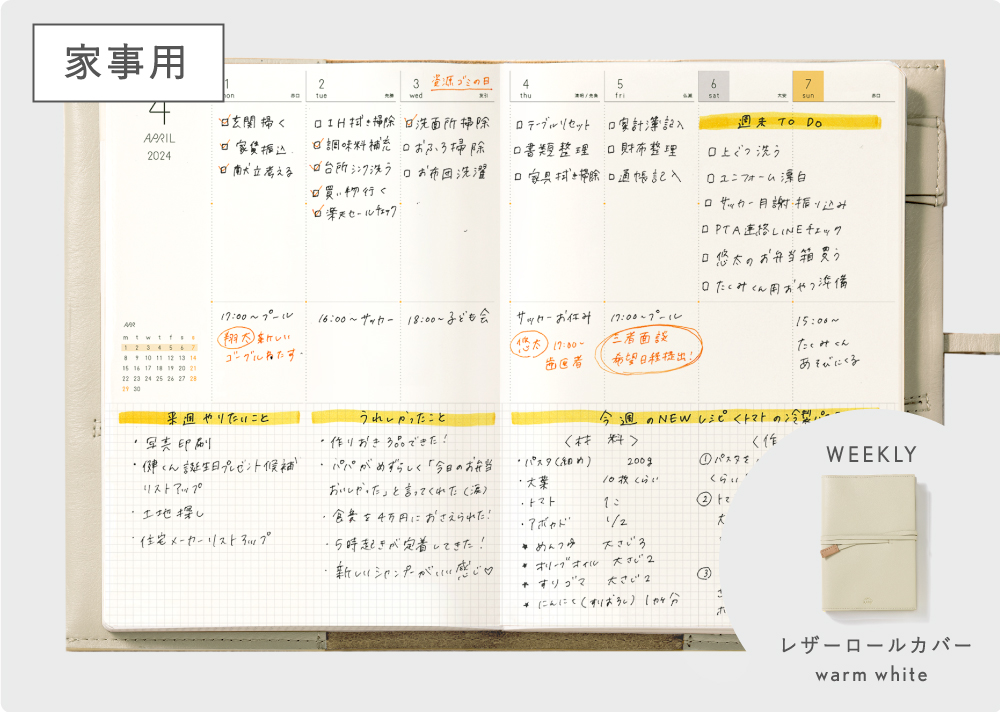 家事用
4
APRIL
2024
1
mon
赤口
玄関掃く
家賃振込
献立考える
2
tue
先勝
IH拭き掃除
調味料補充
台所シンク洗う
買い物行く
楽天セールチェック
3
資源ゴミの日
wed
友引
洗面所掃除
おふろ掃除
お布団洗濯
4
thu
清明/先負
テーブルリセット
書類整理
家具拭き掃除
5
fri
仏滅
家計簿記入
財布整理
通帳記入
6
sat
大安
7
sun
赤口
週末 TO DO
上ぐつ洗う
ユニフォーム漂白
サッカー月謝振り込み
PTA連絡LINEチェック
悠太のお弁当箱買う
たくみくん用おやつ準備
17:00〜プール
翔太 新しい
ゴーグルおろす
16:00〜サッカー
18:00〜子ども会
サッカーお休み
悠太 17:00-
歯医者
17:00〜プール
三者面談
希望日程提出!
15:00〜
たくみくん
あそびにくる
APR
m t w t f s s
1 2 3 4 5 6 7
8 9 10 11 12 13 14
15 16 17 18 19 20 21
22 23 24 25 26 27 28
29 30
来週やりたいこと
・写真印刷
・健くん誕生日プレゼント候補
リストアップ
・土地探し
・住宅メーカーリストアップ
うれしかったこと
・作りおき3品できた!
・パパがめずらしく「今日のお弁当
おいしかった」と言ってくれた(涙)
・食費を4万円におさえられた!
・5時起きが定着してきた!
・新しいシャンプーがいい感じ♡
今週のNEWレシピ<トマトの冷製パ
<材料>
・パスタ(細め) 200g
・大葉 10枚くらい
・トマト 1こ
・アボカド 1/2
★めんつゆ 大さじ3
★オリーブオイル 大さじ2
★すりゴマ 大さじ2
★にんにく(すりおろし) 1かけ分
<作
①パスタを
くらい
②トマ
③
WEEKLY
レザーロールカバー
warm white